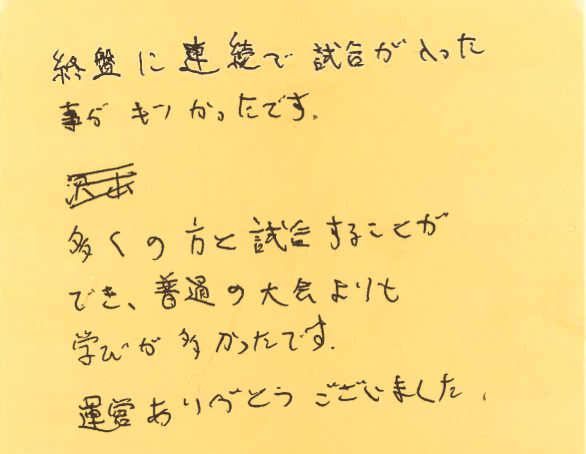 終盤に連続で試合が入った
事がキツかったです.
多くの方と試合することが
でき、普通の大会よりも
学びが多かったです.
運営ありがとうございました.